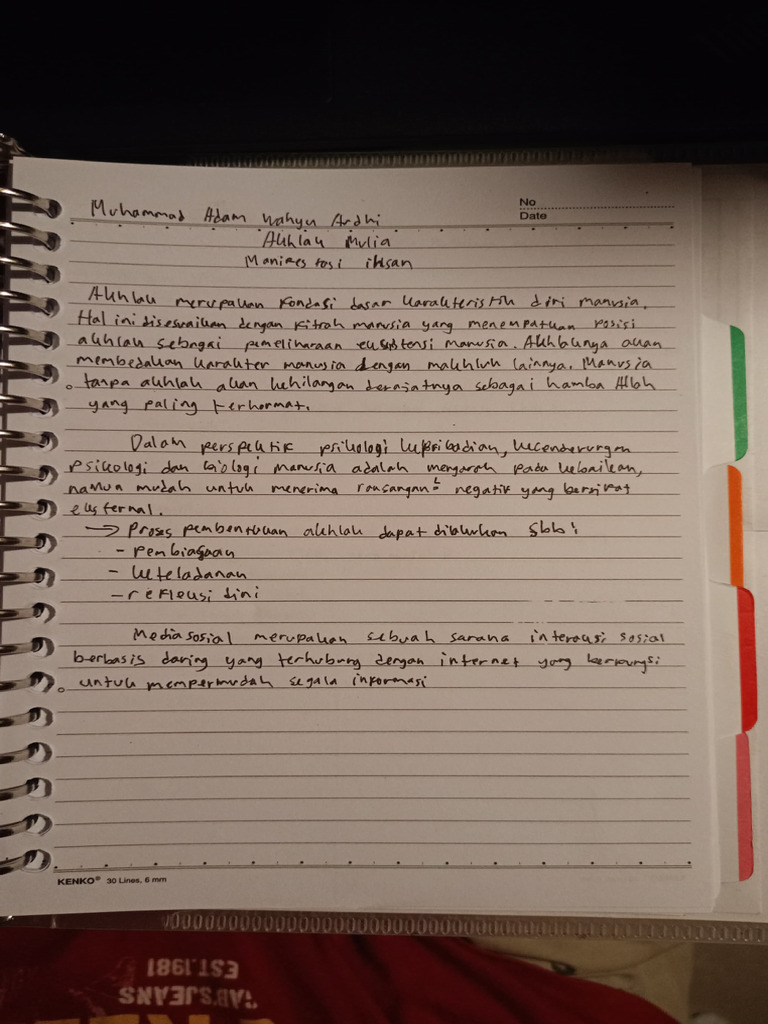 Muhammad Adam Wahyu Ardhi
No
Date
Akhlak Mulia
Manifestasi ihsan
Akhlak merupakan Kondasi dasar karakteristik diri manusia.
Hal ini disesuaikan dengan fitrah manusia yang menempatkan posisi
akhlak sebagai pemeliharaan eksistensi manusia. Akhlaknya akan
membedakan karakter manusia dengan makhluk lainnya. Manusia
tanpa akhlak akan kehilangan derajatnya sebagai hamba Allah
yang paling terhormat.
Dalam perspektif psikologi kepribadian, kecenderungan
psikologi dan biologi manusia adalah mengarah pada kebaikan,
namun mudah untuk menerima rangsangan² negatif yang bersifat
eksternal.
→ Proses pembentukan akhlak dapat dilakukan sbb:
- Pembiasaan
- keteladanan
- refleksi dini
Media sosial merupakan sebuah sarana interaksi sosial
berbasis daring yang terhubung dengan internet yang berfungsi
untuk mempermudah segala informasi
KENKO® 30 Lines, 6 mm
EST.1981
GAB'SJEANS